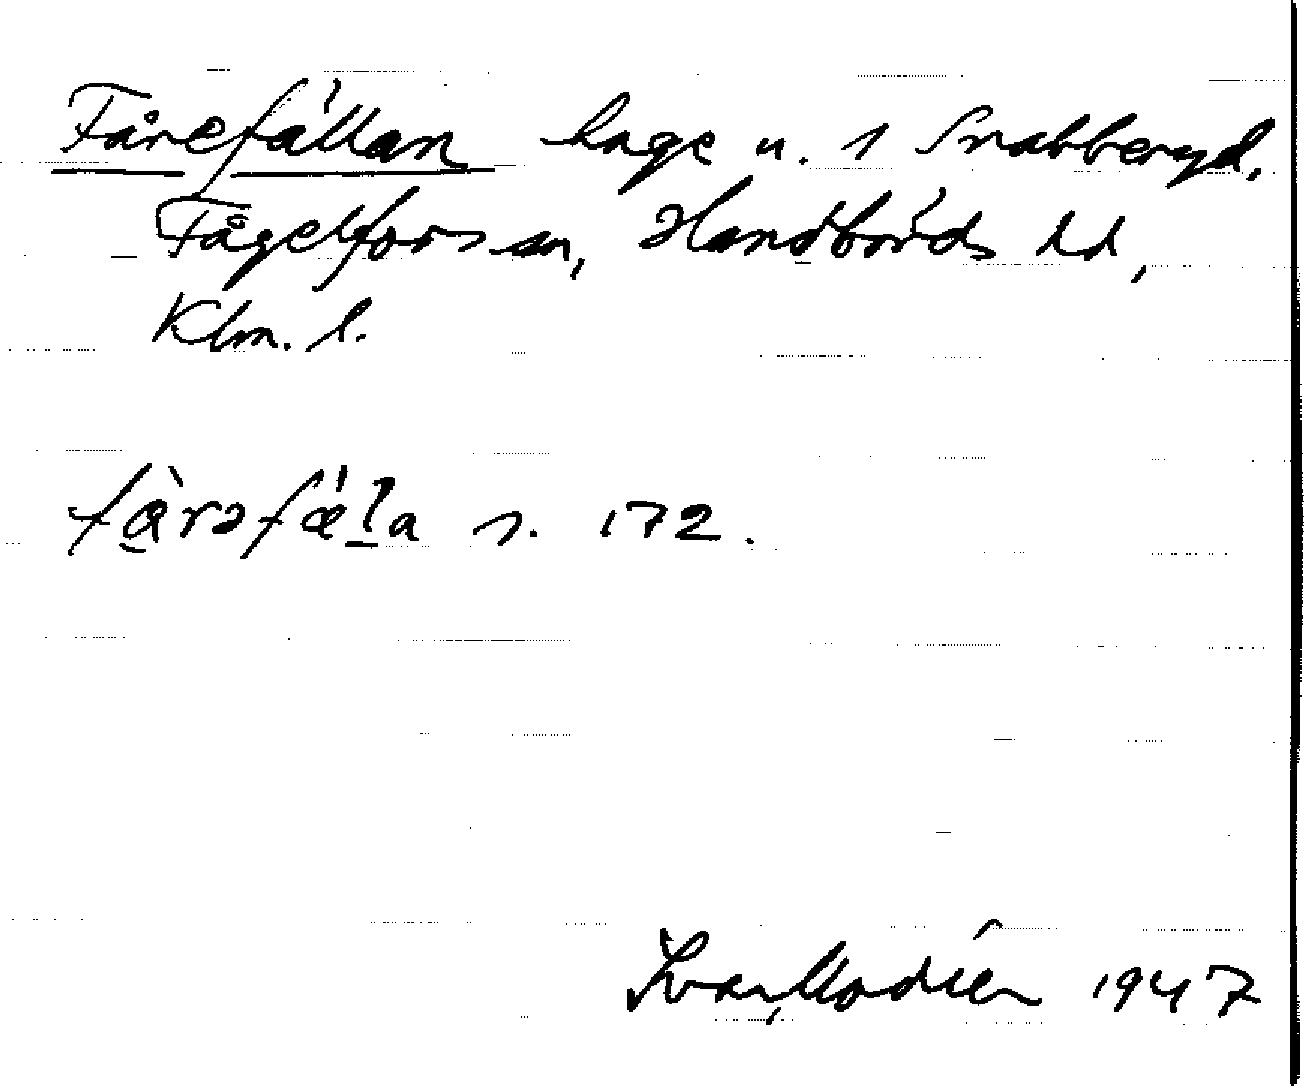 Fårefällan hage u. 1 Snabberyd,
Fågelfors sn, Handbörds hd,
Klm. l.
fæ̀rəfæ̍l̠a s. 172.
Ivar Modéer 1947